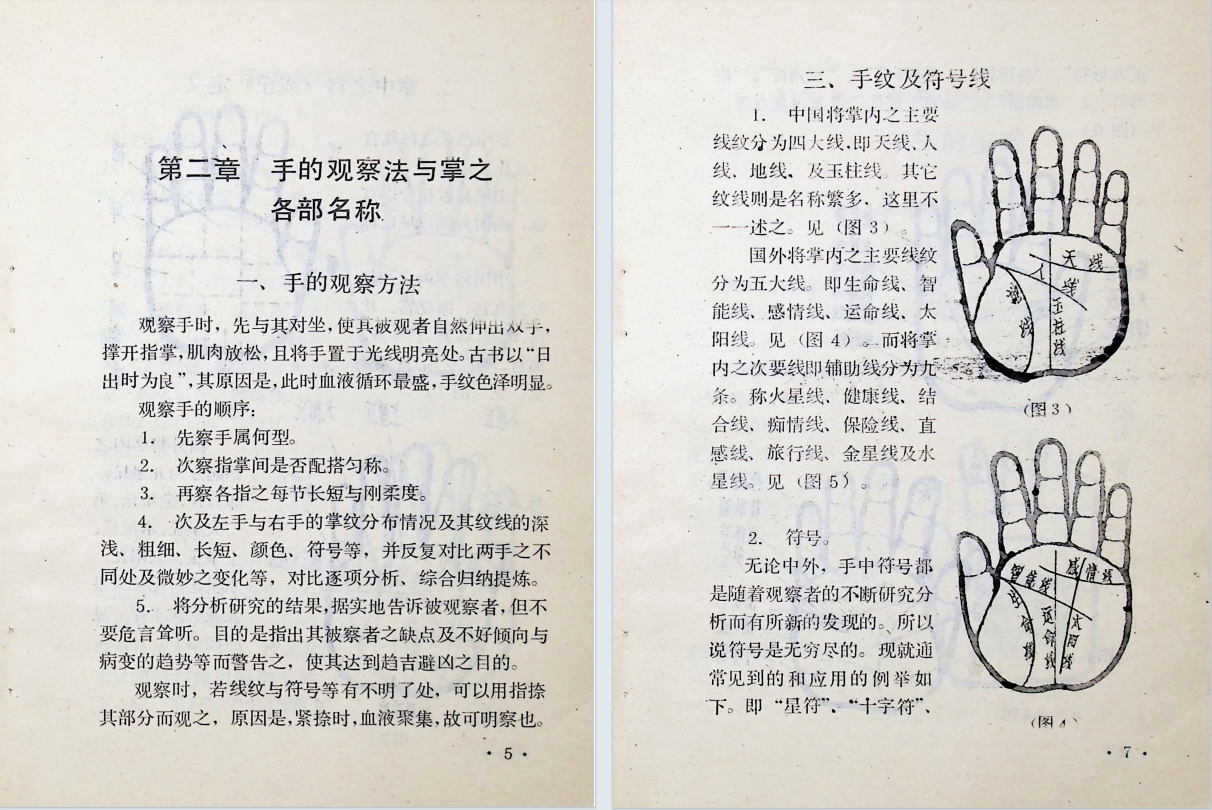 第二章 手的观察法与掌之
各部名称
一、手的观察方法
观察手时，先与其对坐，使其被观者自然伸出双手，
撑开指掌，肌肉放松，且将手置于光线明亮处。古书以“日
出时为良”，其原因是，此时血液循环最盛，手纹色泽明显。
观察手的顺序：
1. 先察手属何型。
2. 次察指掌间是否配搭匀称。
3. 再察各指之每节长短与刚柔度。
4. 次及左手与右手的掌纹分布情况及其纹线的深
浅、粗细、长短、颜色、符号等，并反复对比两手之不
同处及微妙之变化等，对比逐项分析、综合归纳提炼。
5. 将分析研究的结果，据实地告诉被观察者，但不
要危言耸听。目的是指出其被察者之缺点及不好倾向与
病变的趋势等而警告之，使其达到趋吉避凶之目的。
观察时，若线纹与符号等有不明了处，可以用指捺
其部分而观之，原因是，紧捺时，血液聚集，故可明察也。
· 5 ·
三、手纹及符号线
1. 中国将掌内之主要
线纹分为四大线，即天线、人
线、地线、及玉柱线。其它
纹线则是名称繁多，这里不
一一述之。见（图3）。
国外将掌内之主要线纹
分为五大线。即生命线、智
能线、感情线、运命线、太
阳线。见（图4）。而将掌
内之次要线即辅助线分为九
条。称火星线、健康线、结
合线、痴情线、保险线、直
感线、旅行线、金星线及水
星线。见（图5）。
2. 符号。
无论中外，手中符号都
是随着观察者的不断研究分
析而有所新的发现的。所以
说符号是无穷尽的。现就通
常见到的和应用的例举如
下。即“星符”、“十字符”、
天线
人线
玉柱线
线
（图3）
感情线
智能线
生命线
运命线
太阳线
（图4）
· 7 ·